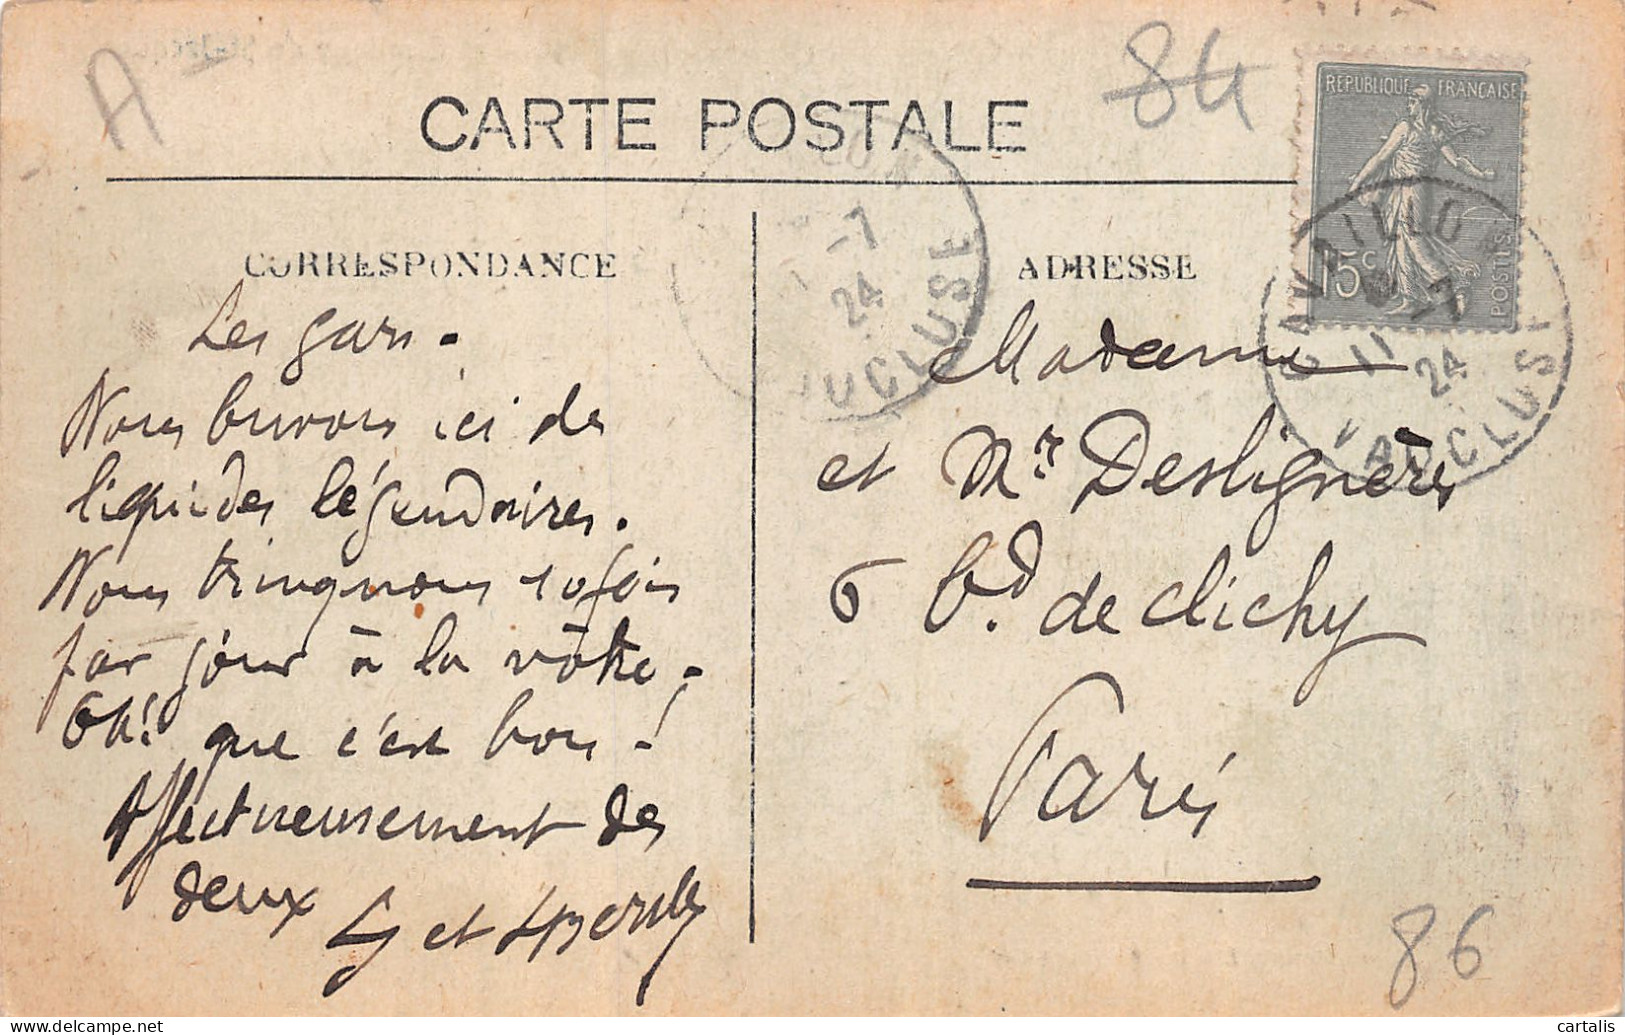 A
84
CARTE POSTALE
REPUBLIQUE FRANÇAISE
15c
POSTES
CAVAILLON
11
-7
24
VAUCLUSE
-7
24
UCLUSE
CORRESPONDANCE
ADRESSE
Les gars.
Nous buvons ici des
liquides légendaires.
Nous trinquons 10 fois
par jour à la vôtre.
Oh! que c'est bon!
Affectueusement des
deux
et
Madame
et Mr. Deslignères
6 bd. de Clichy
Paris
86
www.delcampe.net
cartalis